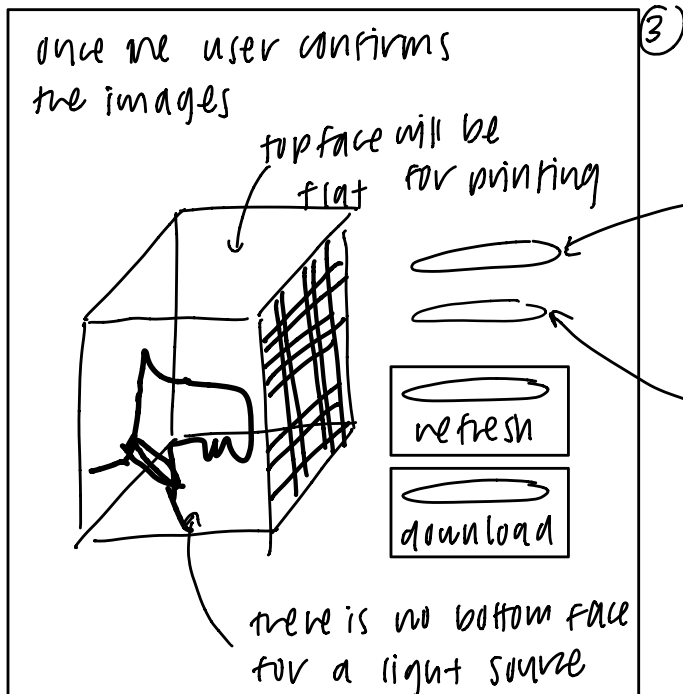 3
once the user confirms
the images
top face will be
flat for printing
refresh
download
there is no bottom face
for a light source